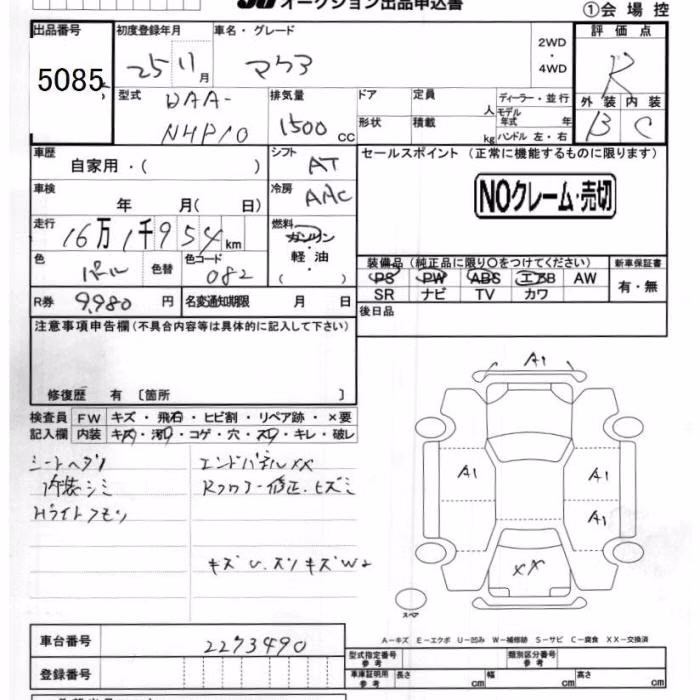 オークション出品申込書
①会場控
出品番号 初度登録年月 車名・グレード 2WD・4WD 評価点
5085 25 11月 アクア R
型式 DAA-NHP10 排気量 1500 cc ドア 定員 人 ディーラー・並行 外装 内装
形状 積載 kg モデル年式 年 ハンドル 左・右 B C
車歴 自家用・( ) シフト AT セールスポイント (正常に機能するものに限ります)
車検 年 月( 日) 冷房 AAC NOクレーム・売切
走行 16万1千954km 燃料 ガソリン・軽油・( )
色 パール 色替 色コード 082 装備品(純正品に限り○をつけてください) 新車保証書
PS PW ABS エアB AW 有・無
SR ナビ TV カワ
R券 9,980 円 名変通知期限 月 日 後日品
注意事項申告欄(不具合内容等は具体的に記入して下さい)
修復歴 有 〔箇所 〕
検査員 FW キズ・飛石・ヒビ割・リペア跡・×要
記入欄 内装 キズ・汚れ・コゲ・穴・スレ・キレ・破レ
シートヘタリ エンドパネルXX
内装シミ Rフロアー修正、ヒズミ
Hライトクモリ
キズ U、スリキズ W2
A1
A1 A1
A1
XX
スペア
A―キズ E―エクボ U―凹み W―補修跡 S―サビ C―腐食 XX―交換済
車台番号 2273490 型式指定番号 参考 類別区分番号 参考
登録番号 車庫証明用 参考 長さ cm 幅 cm 高さ cm